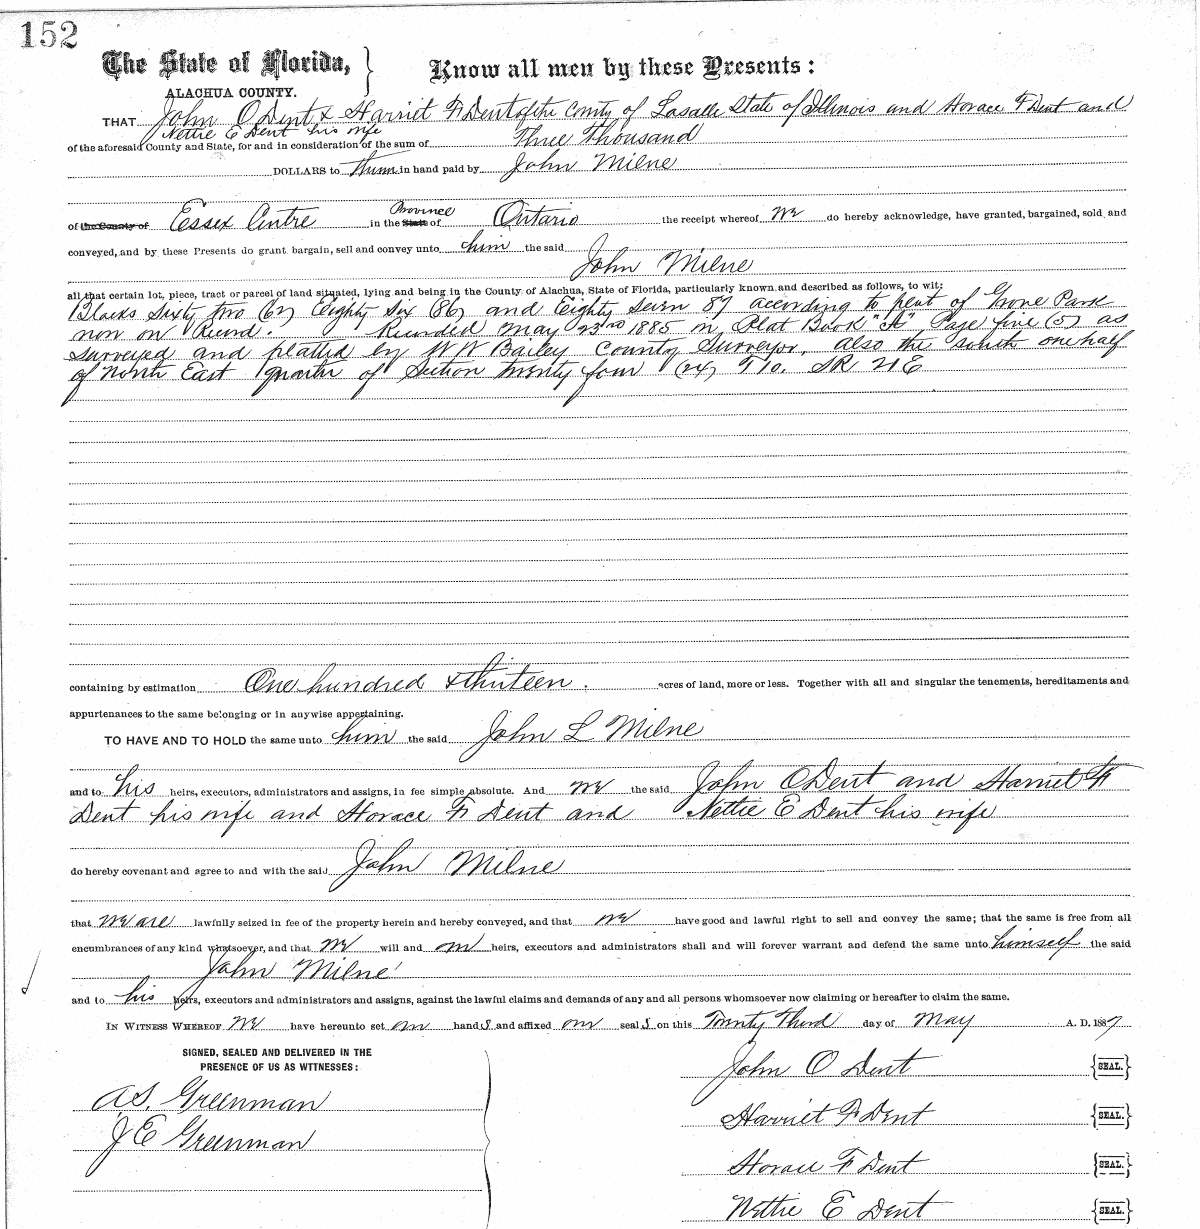 152
The State of Florida, } Know all men by these Presents:
ALACHUA COUNTY.
THAT John O Dent & Harriet F Dent of the County of Lasalle State of Illinois and Horace F Dent and
Nettie E Dent his wife
of the aforesaid County and State, for and in consideration of the sum of Three Thousand
DOLLARS to them in hand paid by John Milne
of the County of Essex Centre in the State Province of Ontario the receipt whereof we do hereby acknowledge, have granted, bargained, sold and
conveyed, and by these Presents do grant bargain, sell and convey unto him the said
John Milne
all that certain lot, piece, tract or parcel of land situated, lying and being in the County of Alachua, State of Florida, particularly known and described as follows, to wit:
Blocks Sixty two (62) Eighty Six (86) and Eighty Seven 87 according to plat of Grove Park
now on Record. Recorded May 23rd 1885 in Plat Book "A" Page five (5) as
surveyed and platted by W W Bailey County Surveyor. Also the south one half
of North East quarter of Section twenty four (24) T10. SR 21E
containing by estimation One hundred & thirteen. acres of land, more or less. Together with all and singular the tenements, hereditaments and
appurtenances to the same belonging or in anywise appertaining.
TO HAVE AND TO HOLD the same unto him the said John L Milne
and to his heirs, executors, administrators and assigns, in fee simple absolute. And we the said John O Dent and Harriet F
Dent his wife and Horace F Dent and Nettie E Dent his wife
do hereby covenant and agree to and with the said John Milne
that we are lawfully seized in fee of the property herein and hereby conveyed, and that we have good and lawful right to sell and convey the same; that the same is free from all
encumbrances of any kind whatsoever, and that we will and our heirs, executors and administrators shall and will forever warrant and defend the same unto himself the said
John Milne
and to his heirs, executors and administrators and assigns, against the lawful claims and demands of any and all persons whomsoever now claiming or hereafter to claim the same.
IN WITNESS WHEREOF we have hereunto set our hand s and affixed our seal s on this Twenty Third day of May A. D. 1887
SIGNED, SEALED AND DELIVERED IN THE
PRESENCE OF US AS WITNESSES:
A.S. Greenman
J E Greenman
John O Dent {SEAL.}
Harriet F Dent {SEAL.}
Horace F Dent {SEAL.}
Nettie E Dent {SEAL.}